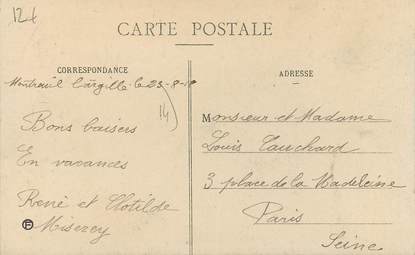 12t
CARTE POSTALE
CORRESPONDANCE
Montreuil l'argille le 23-8-18
14
Bons baisers
En vacances
René et Clotilde
Miserey
ADRESSE
Monsieur et Madame
Louis Tauchard
3 place de la Madeleine
Paris
Seine